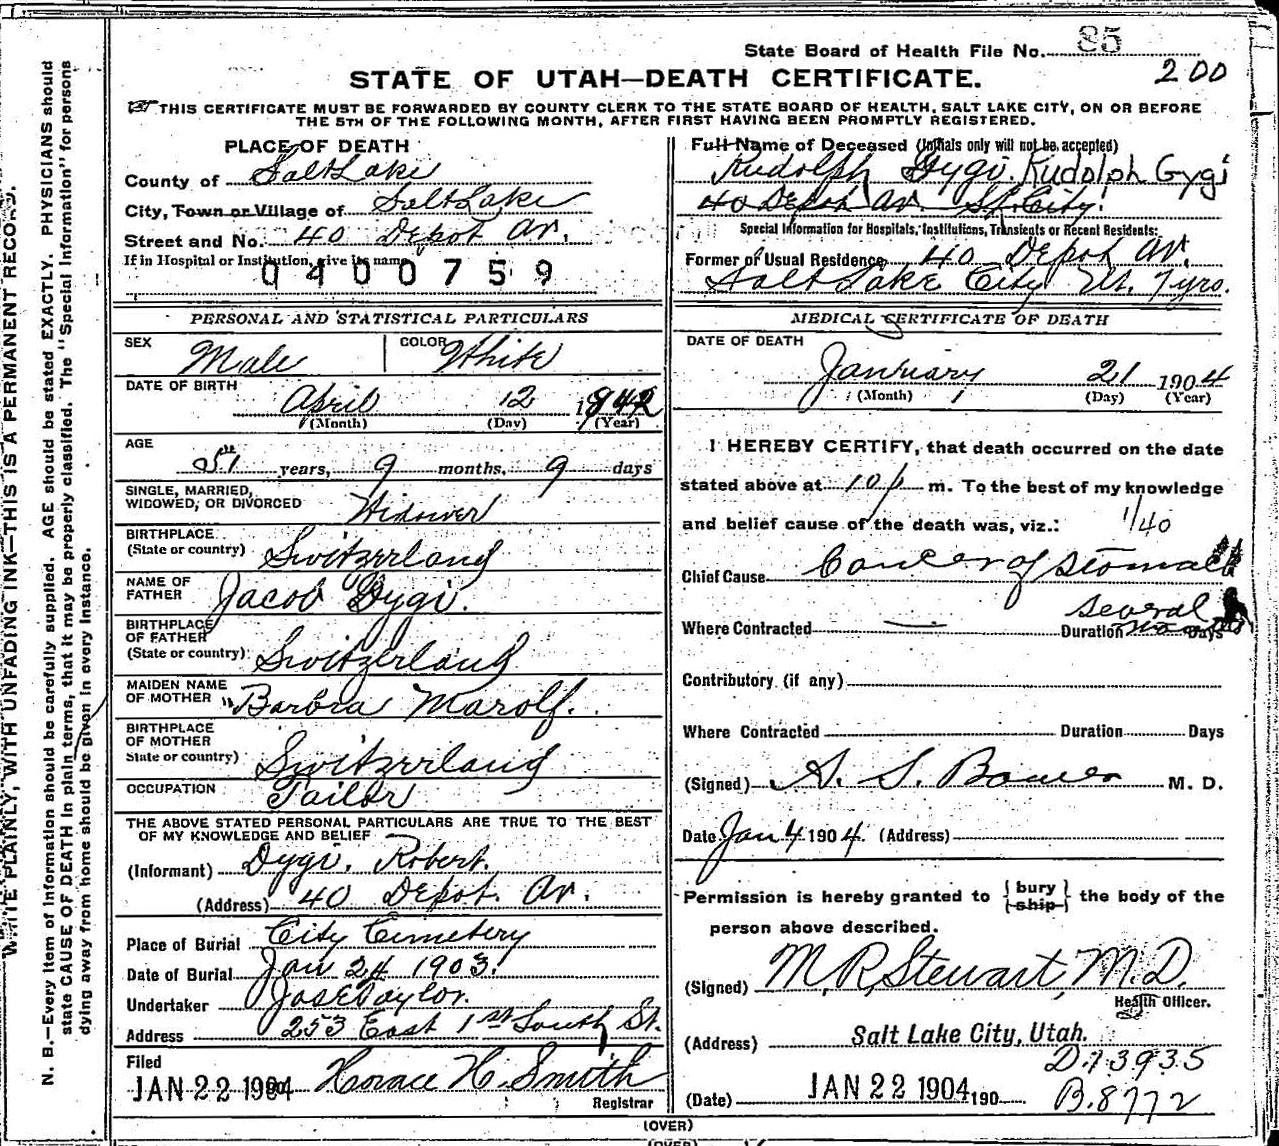 State Board of Health File No. 85
200
STATE OF UTAH—DEATH CERTIFICATE.
THIS CERTIFICATE MUST BE FORWARDED BY COUNTY CLERK TO THE STATE BOARD OF HEALTH, SALT LAKE CITY, ON OR BEFORE
THE 5TH OF THE FOLLOWING MONTH, AFTER FIRST HAVING BEEN PROMPTLY REGISTERED.
PLACE OF DEATH
County of Salt Lake
City, Town or Village of Salt Lake
Street and No. 40 Depot Av.
If in Hospital or Institution, give its name
0400759
Full Name of Deceased (Initials only will not be accepted)
Rudolph Gygi. Rudolph Gygi
40 Depot Av. City.
Special Information for Hospitals, Institutions, Transients or Recent Residents:
Former of Usual Residence 40 Depot Av.
Salt Lake City Ut. 7 yrs.
PERSONAL AND STATISTICAL PARTICULARS
SEX Male
COLOR White
DATE OF BIRTH
April 12 1842
(Month) (Day) (Year)
AGE
years, 9 months, 9 days
SINGLE, MARRIED,
WIDOWED, OR DIVORCED Widower
BIRTHPLACE
(State or country) Switzerland
NAME OF
FATHER Jacob Gygi.
BIRTHPLACE
OF FATHER
(State or country) Switzerland
MAIDEN NAME
OF MOTHER Barbra Marolf.
BIRTHPLACE
OF MOTHER
State or country) Switzerland
OCCUPATION Tailor
THE ABOVE STATED PERSONAL PARTICULARS ARE TRUE TO THE BEST
OF MY KNOWLEDGE AND BELIEF
(Informant) Gygi. Robert.
(Address) 40 Depot. Av.
Place of Burial City Cemetery
Date of Burial Jan 24 1903.
Undertaker Jos E Taylor.
Address 253 East 1st South St.
Filed
JAN 22 1904 Horace H. Smith
Registrar
MEDICAL CERTIFICATE OF DEATH
DATE OF DEATH
January 21 1904
(Month) (Day) (Year)
I HEREBY CERTIFY, that death occurred on the date
stated above at 10 p m. To the best of my knowledge
and belief cause of the death was, viz.: 1/40
Chief Cause Cancer of Stomach
several
Where Contracted — Duration Days
Contributory (if any)
Where Contracted Duration Days
(Signed) S. S. Bower M. D.
Date Jan 4 1904. (Address)
Permission is hereby granted to bury ship the body of the
person above described.
(Signed) M. R. Stewart, M.D.
Health Officer.
(Address) Salt Lake City, Utah.
D.13935
(Date) JAN 22 1904 190
B.8772
(OVER)
(OVER)
WRITE PLAINLY, WITH UNFADING INK—THIS IS A PERMANENT RECORD.
N. B.—Every item of information should be carefully supplied. AGE should be stated EXACTLY. PHYSICIANS should
state CAUSE OF DEATH in plain terms, that it may be properly classified. The "Special Information" for persons
dying away from home should be given in every instance.